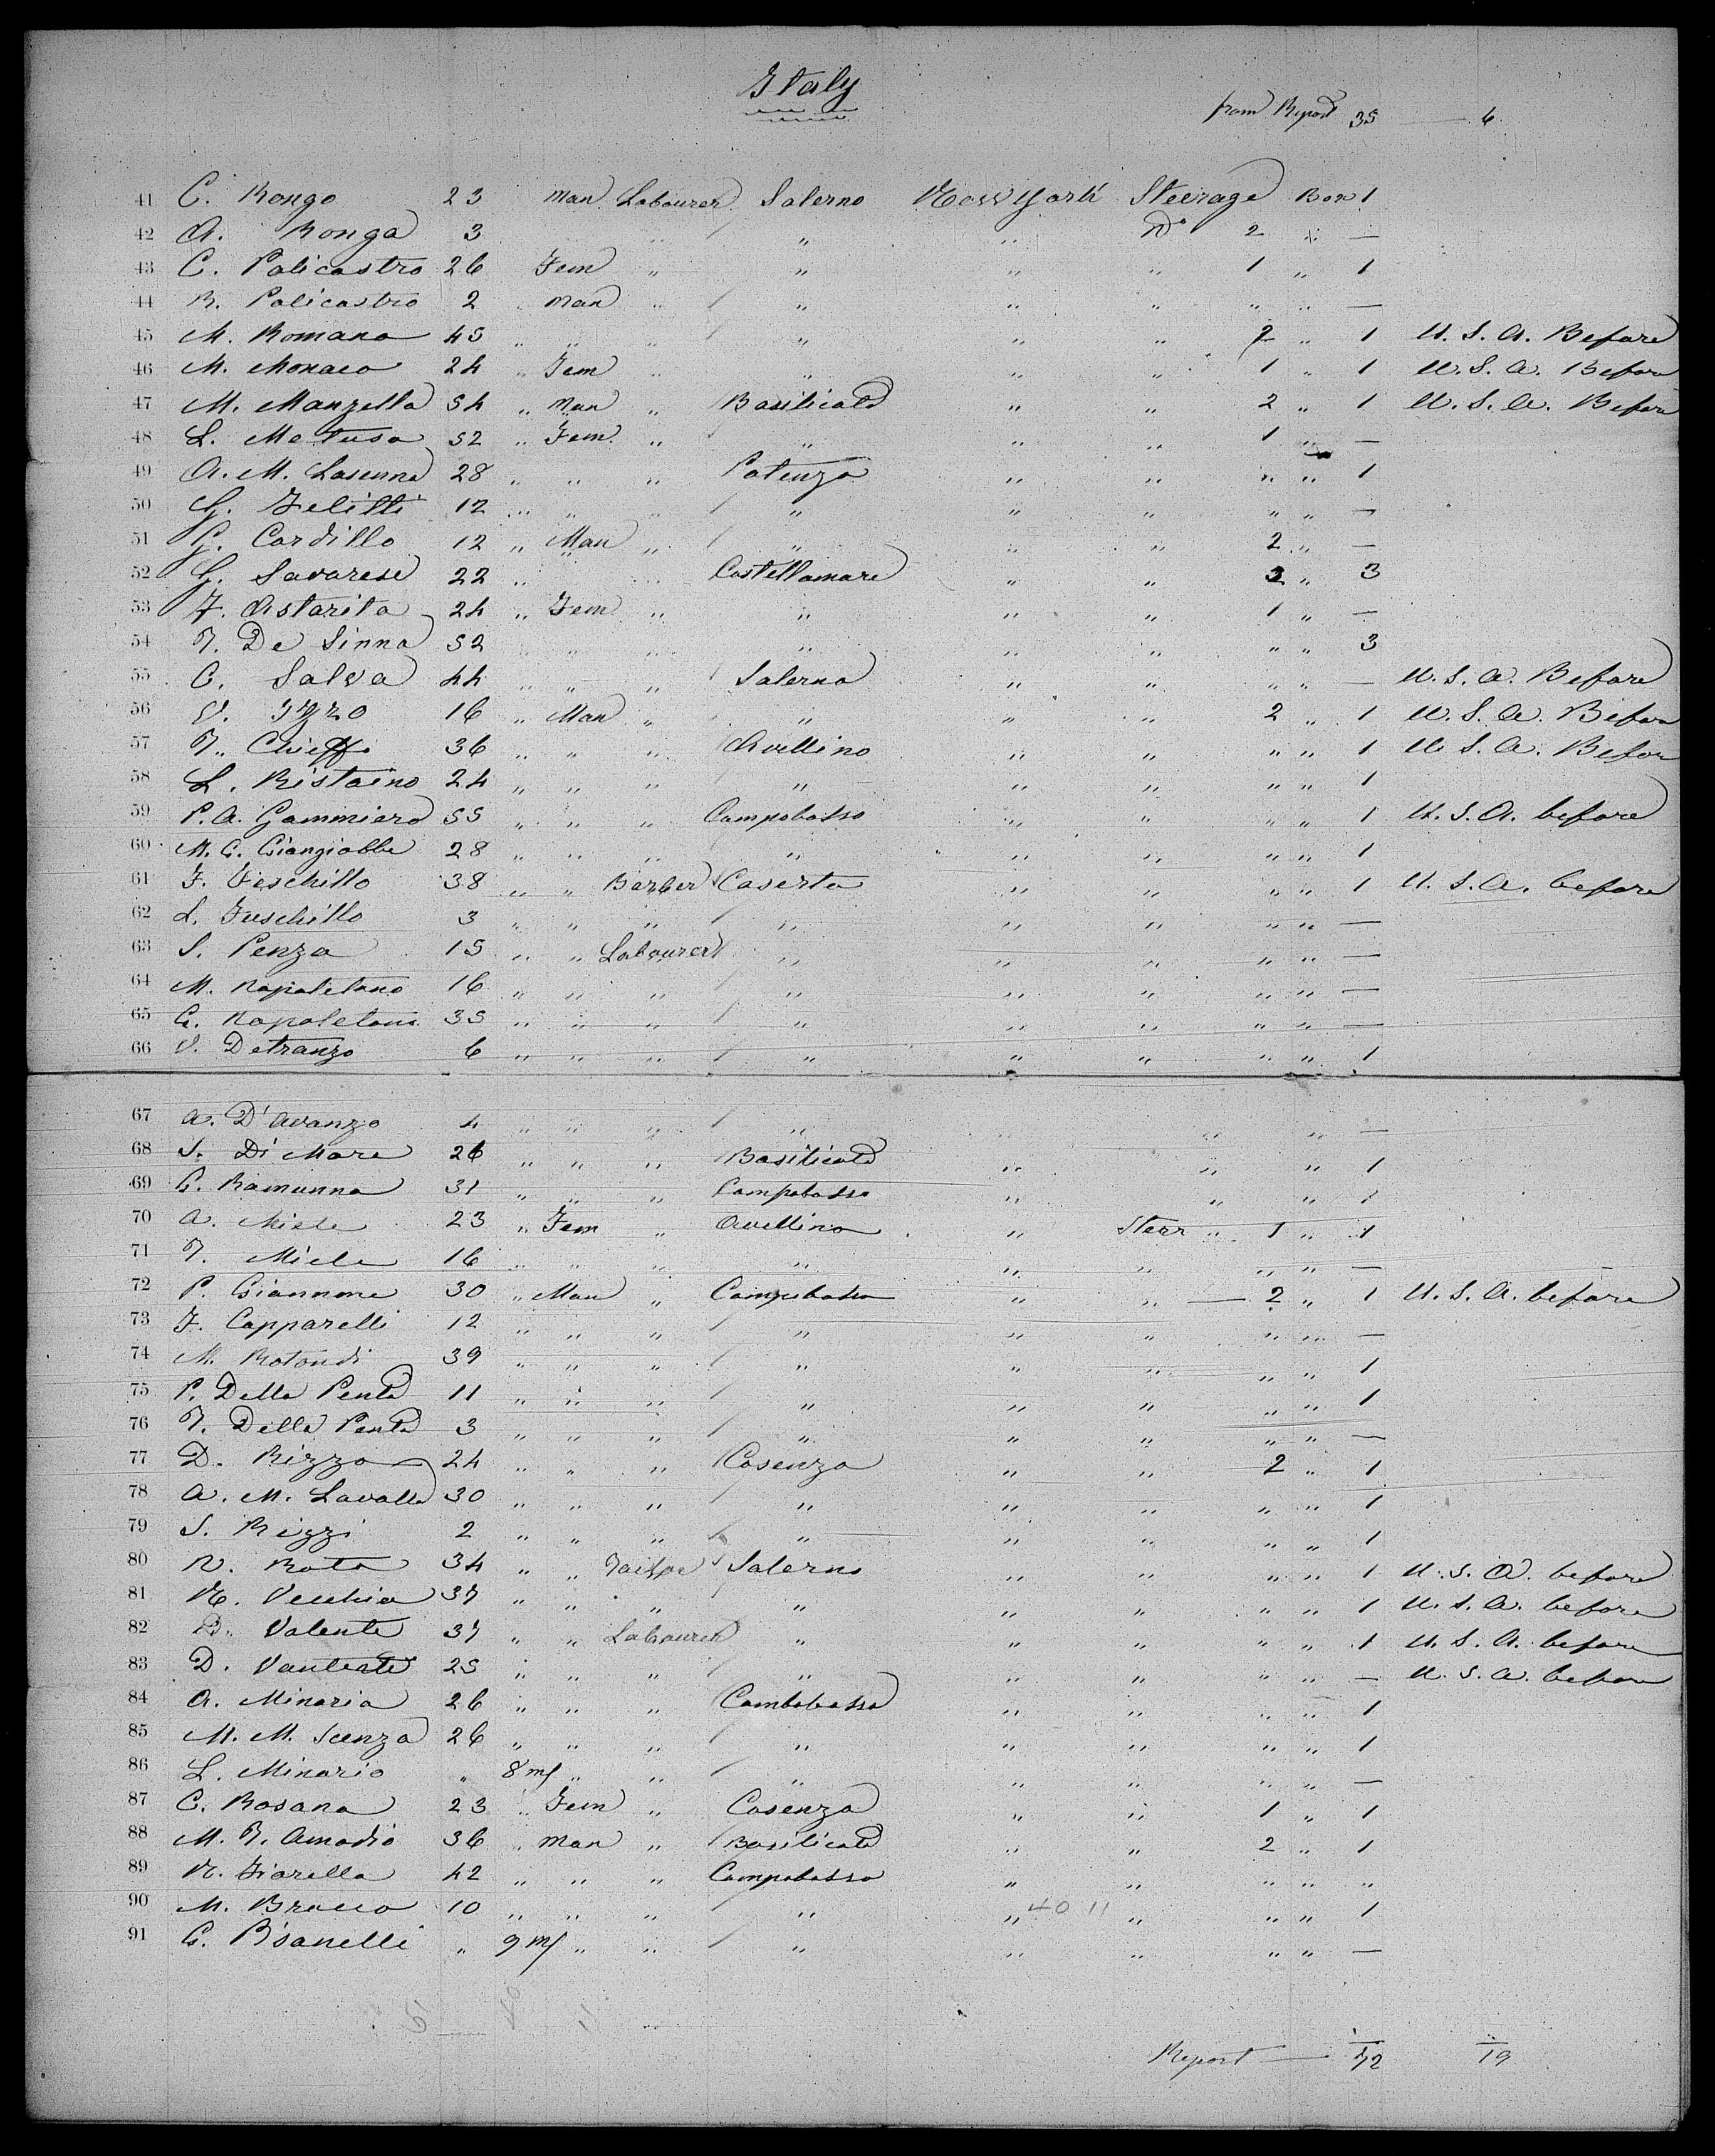 Italy
from Report 35 — 6
41 C. Rongo 23 Man Labourer Salerno New York Steerage Box 1
42 A. Ronga 3 " / " " Do 2 " —
43 C. Policastro 26 Fem " " " " 1 " 1
44 R. Policastro 2 " Man " / " " " " " —
45 M. Romano 45 " " " / " " " 2 " 1 U. S. A. Before
46 M. Monaco 24 " Fem " " " " 1 " 1 U. S. A. Before
47 M. Manzella 54 " Man " Basilicata " " 2 " 1 U. S. A. Before
48 L. Metusa 52 " Fem " / " " " 1 " —
49 A. M. Lasenna 28 " " " Potenza " " " " 1
50 G. Felitti 12 " " " / " " " " " —
51 G. Cardillo 12 " Man " / " " " 2 " —
52 G. Savarese 22 " " Castellamare " " 3 " 3
53 F. Astarita 24 " Fem " " " " 1 " —
54 T. De Sinna 52 " " " " " " " " 3
55 C. Salva 44 " " " / Salerno " " " " — U. S. A. Before
56 V. Izzo 16 " Man " / " " " 2 " 1 U. S. A. Before
57 T. Chieffi 36 " " " Avellino " " " " 1 U. S. A. Before
58 L. Ristaino 24 " " " / " " " " " 1
59 P. A. Gammiero 55 " " " Campobasso " " " " 1 U. S. A. before
60 M. C. Giangiobbe 28 " " " / " " " " " 1
61 F. Feschillo 38 " " Barber Caserta " " " " 1 U. S. A. before
62 L. Fuschillo 3 " " " / " " " " " —
63 S. Penza 15 " " Labourer / " " " " " —
64 M. Napoletano 16 " " " / " " " " " —
65 G. Napoletano 35 " " " / " " " " " —
66 V. Detranzo 6 " " " / " " " " " 1
67 A. D'Avanzo 4 " " " / " " " " —
68 S. Di Mare 26 " " " Basilicata " " " 1
69 G. Ramunna 31 " " " Campobasso " " " 1
70 A. Miele 23 " Fem " Avellino " Steer " 1 " 1
71 T. Miele 16 " " " " " " " " —
72 P. Giannone 30 " Man " Campobasso " " — 2 " 1 U. S. A. before
73 F. Capparelli 12 " " " / " " " " " —
74 M. Rotondi 39 " " " / " " " " " 1
75 P. Della Penta 11 " " " / " " " " " 1
76 T. Della Penta 3 " " " / " " " " " —
77 D. Rizzo 24 " " " Cosenza " " 2 " 1
78 A. M. Lavalle 30 " " " / " " " " " 1
79 S. Rizzi 2 " " " / " " " " " 1
80 N. Rota 34 " " Salerno " " " " 1 U. S. A. before
81 N. Vecchia 37 " " " / " " " " " 1 U. S. A. before
82 D. Valente 37 " " Labourer " " " " " 1 U. S. A. before
83 D. 25 " " " / " " " " " — U. S. A. before
84 A. Minaria 26 " " " Cambobasso " " " " 1
85 M. M. Scenza 26 " " " / " " " " " 1
86 L. Minario " 8 m/ " " / " " " " " —
87 C. Rosana 23 " Fem " Cosenza " " 1 " 1
88 M. T. Amodio 36 " Man " / Basilicata " " 2 " 1
89 N. Fiorella 42 " " " Campobasso " " " " "
90 M. Brocco 10 " " " / " " 40 11 " " " 1
91 G. Bianelli " 9 m/ " " / " " " " " —
Report — 72 19